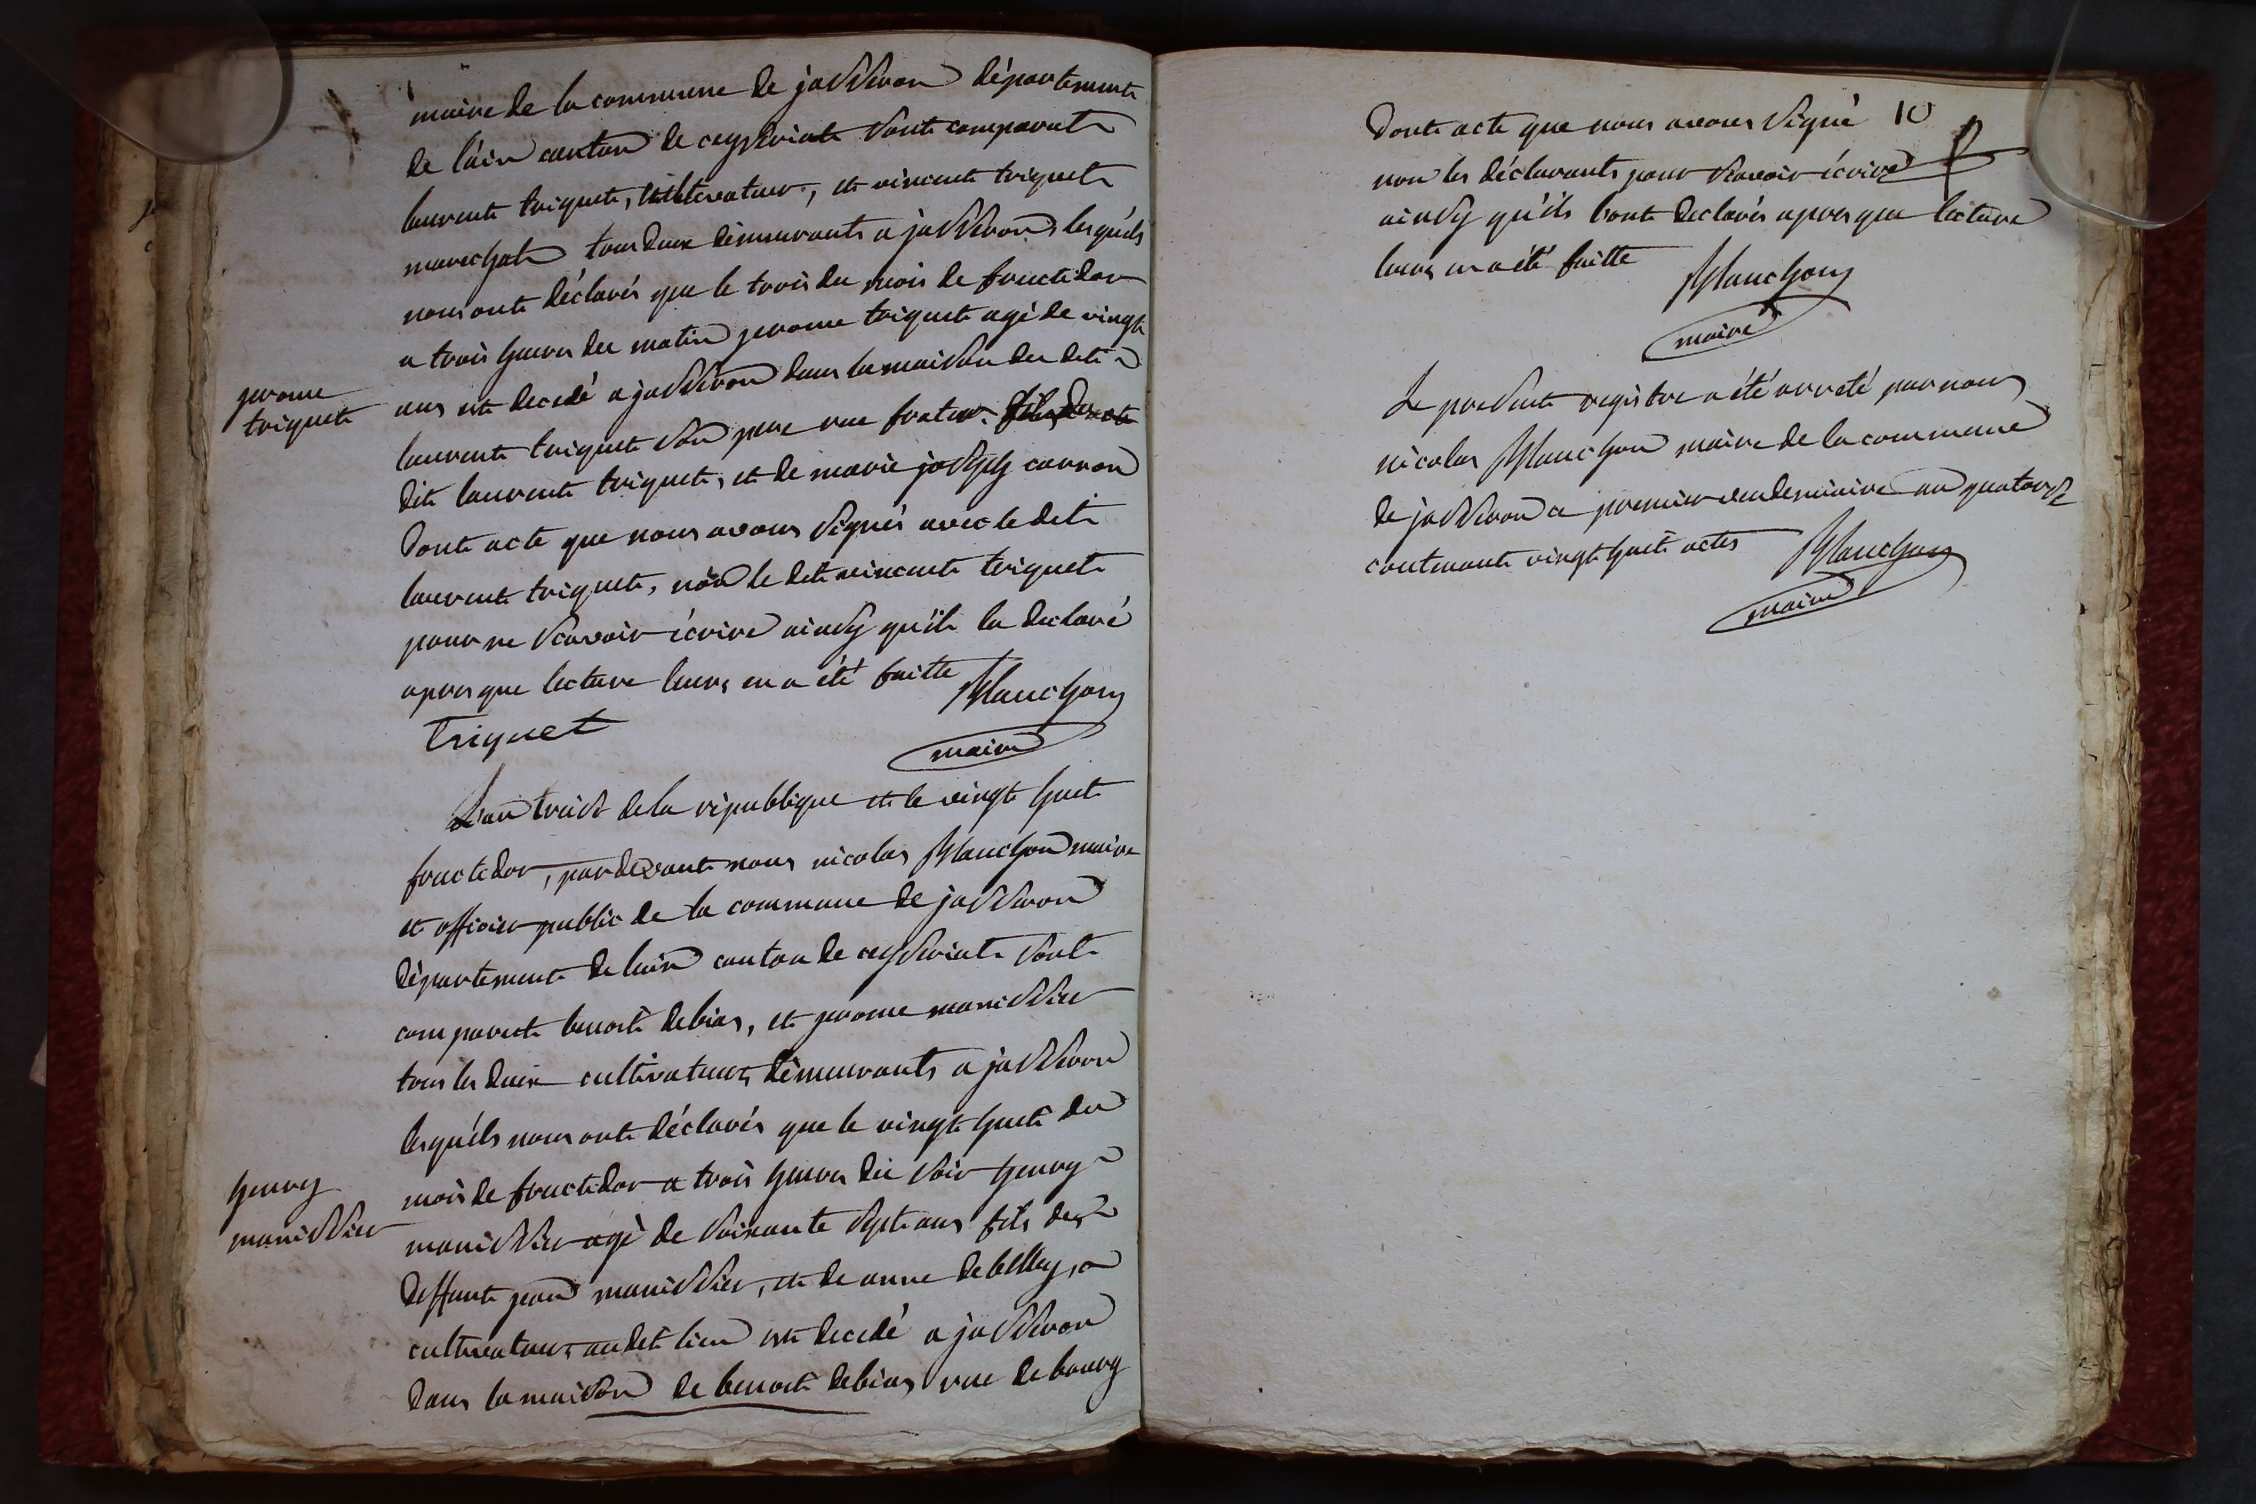 maire de la commune de jasseron département
de l'ain canton de ceyzeriat sont comparut
laurent triquet, et vincent triquet
marechal tous deux démeurants a jasseron, lesquéls
nous ont déclarés que le trois du mois de fructidor
a trois heures du matin jerome triquet agé de vingt
ans est decedé a jasseron dans la maison du dit
jerome
triquet
laurent triquet son pere rue frater
dit laurent triquet, et de marie joseph carron
dont acte que nous avons signés avec le dit
laurent triquet, non le dit vincent triquet
pour ne scavoir écrire ainsy qu'il la declaré
apres que lecture leurs en a été faitte
Blanchon
Triquet
maire
L'an treise de la république et le vingt huit
fructidor, pardevant nous nicolas Blanchon maire
et officier public de la commune de jasseron
département de lain canton de ceyseriat sont
comparut benoit debias, et jerome manissier
tous les deux cultivateurs démeurants a jasseron
lesquéls nous ont déclarés que le vingt huit du
mois de fructidor a trois heures du soir henry
henry
manissier
manissier agé de soixante sept ans fils de
deffunt jean manissier, et de anne debelley,
cultivateur audit lieu est decedé a jasseron
dans la maison de benoit debias rue de bourg
dont acte que nous avons signé 10
non les déclarants pour scavoir écrire
ainsy qu'ils l'ont declarés apres que lecture
leurs en a été faitte
Blanchon
maire
Le present registre a été arreté par nous
nicolas Blanchon maire de la commune
de jasseron ce premier vendemiaire an quatorze
contenant vingt huit actes
Blanchon
maire